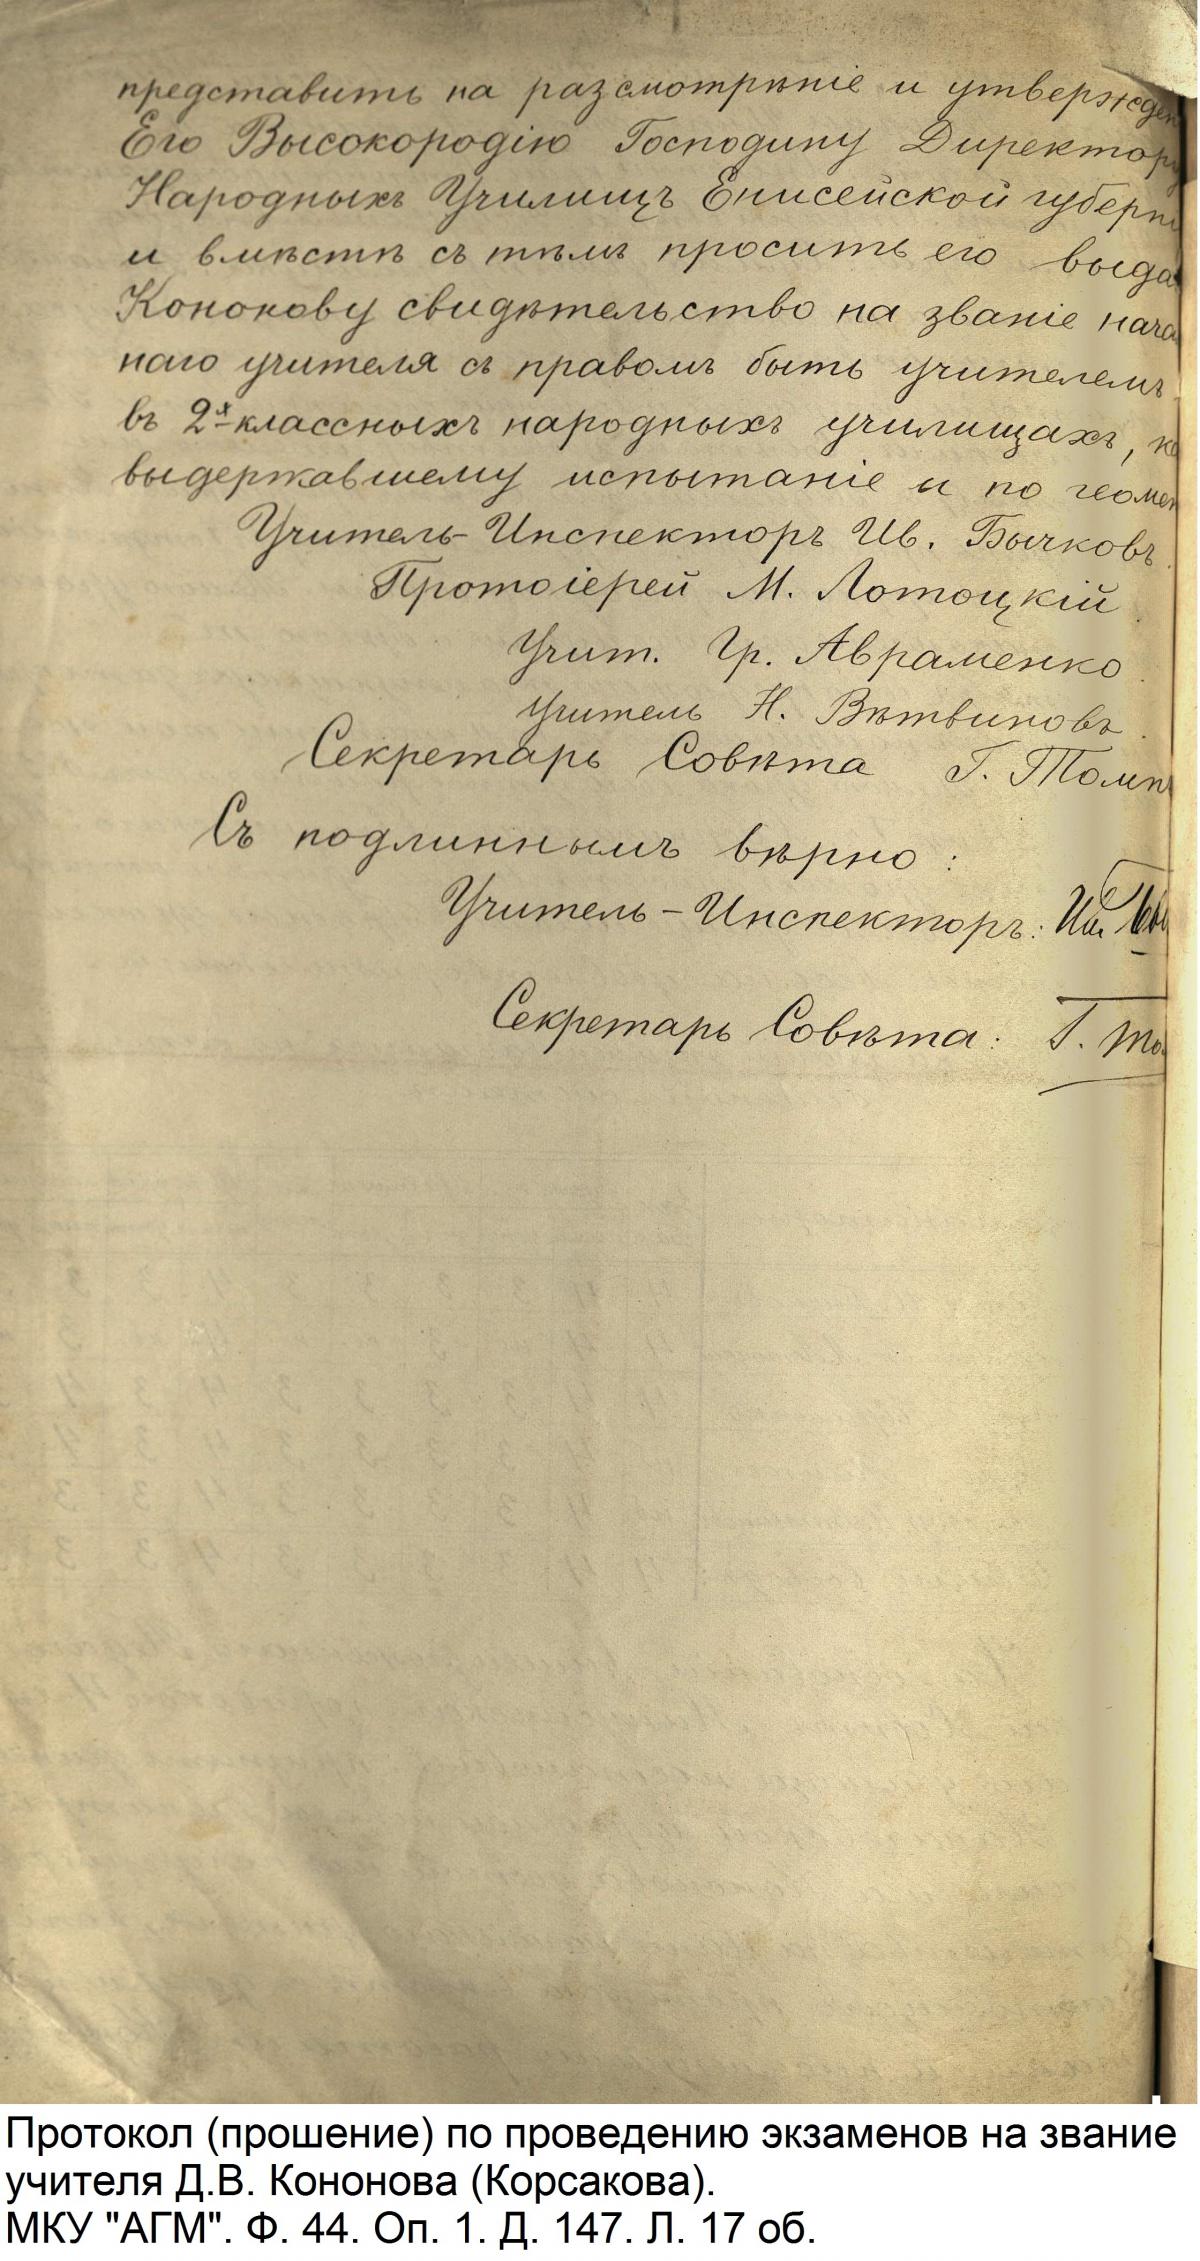 представить на разсмотрѣніе и утвержден
Его Высокородію Господину Директору
Народныхъ Училищъ Енисейской губерні
и вмѣстѣ съ тѣмъ просить его выда
Кононову свидѣтельство на званіе нача
наго учителя съ правомъ быть учителемъ
въ 2х-классныхъ народныхъ училищахъ, ка
выдержавшему испытаніе и по геомет
Учитель-Инспекторъ Ив. Бычковъ.
Протоіерей М. Лотоцкій
Учит. Гр. Авраменко.
Учитель Н. Вѣтвиновъ.
Секретарь Совѣта Г.
Съ подлиннымъ вѣрно:
Учитель-Инспекторъ:
Секретарь Совѣта: Г.
Протокол (прошение) по проведению экзаменов на звание
учителя Д.В. Кононова (Корсакова).
МКУ "АГМ". Ф. 44. Оп. 1. Д. 147. Л. 17 об.